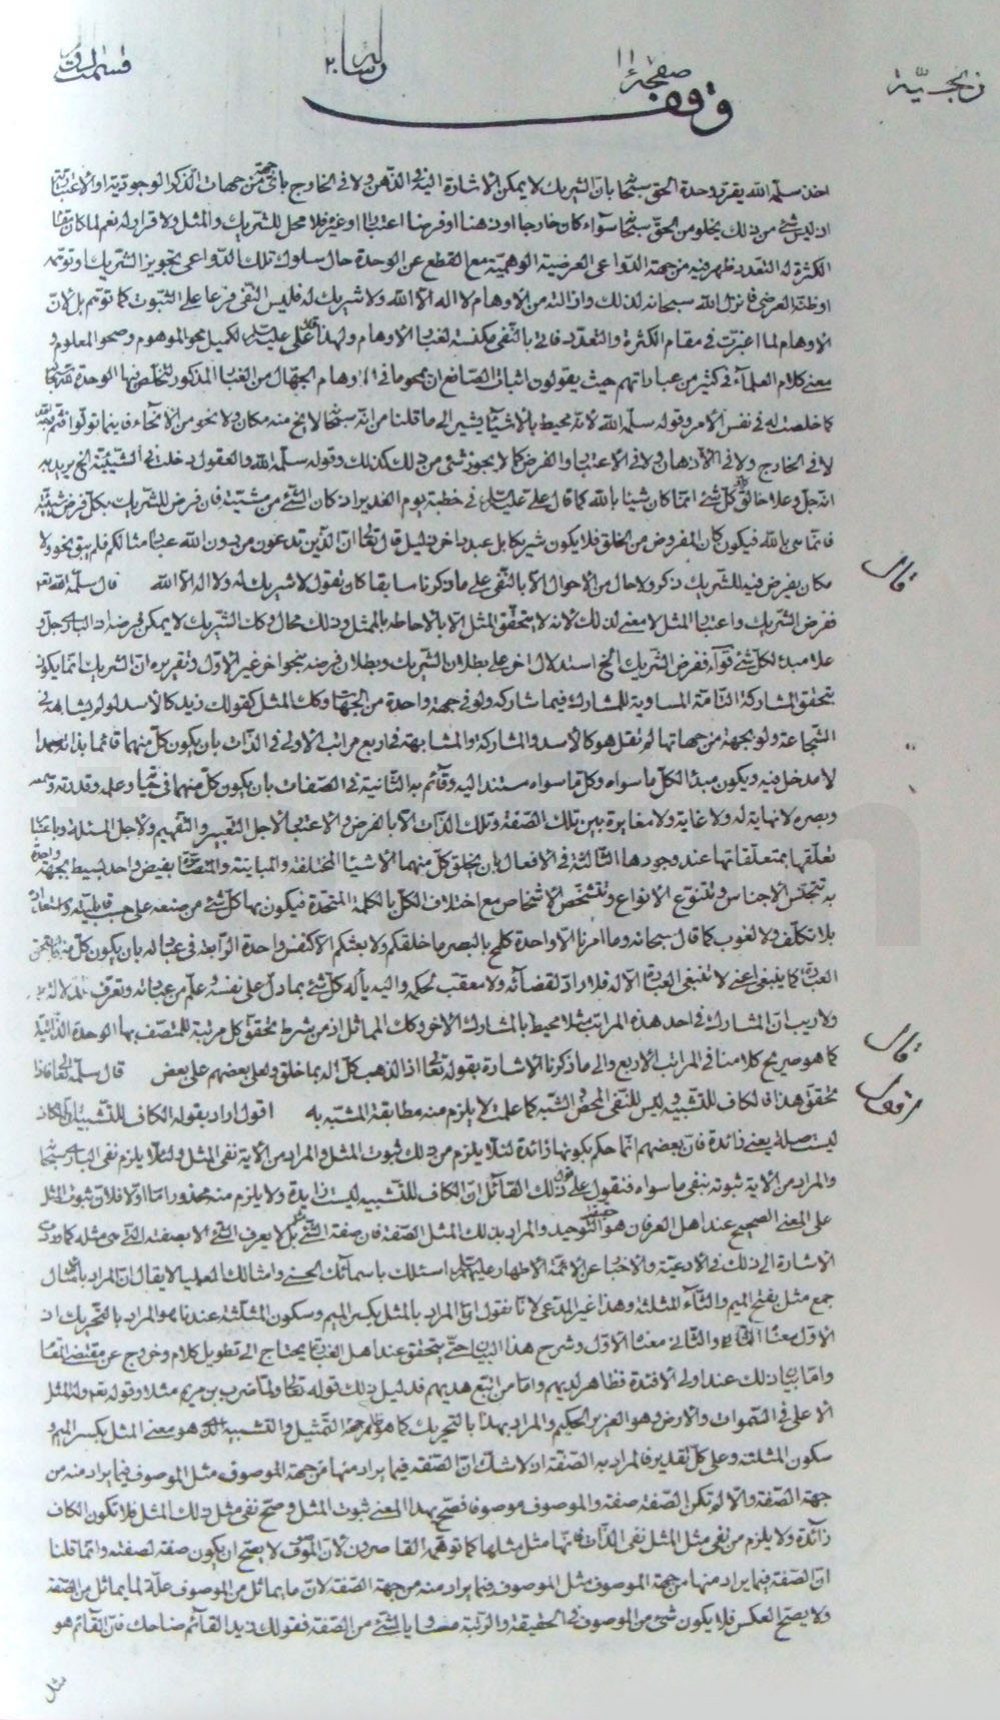 زنجيّة
صفحة ١١
رسالة ٢٠
قسمت اول
وقف
اخذ سلّمه الله يقرّر وحدة الحق سبحانه بانّ الشريك لا يمكن الاشارة اليه فى الذهن ولا فى الخارج باىّ جهة من جهات الذكر الوجودية او الاعتبارية
اذ ليس شئ من ذلك يخلو من الحق سبحانه سواء كان خارجا او ذهنا او فرضا او اعتبارا او غيره فلا محل للشريك والمثل ولا قرار له نعم لما كان
الكثرة له التعدد ظهر فيه من جهة الدواعى العرضية الوهميّة مع القطع عن الوحدة حال سلوك تلك الدواعى تجويز الشريك وتوهّمه
او ظنّه العرضى فانزل الله سبحانه لذلك وازالته من الاوهام لا اله الا الله ولا شريك له فليس النفى فرعا على الثبوت كما توهّم بل لانّ
الاوهام لما اغبرّت فى مقام الكثرة والتعدد فاتى بالنفى مكنسة لغبار الاوهام ولهذا قال على عليه السلام لكميل محو الموهوم وصحو المعلوم و
معنى كلام العلماء فى كثير من عباراتهم حيث يقولون اثبات الصانع ان يمحو ما فى اوهام الجهال من الغبار المذكور لتخلص فيها الوحدة لله سبحانه
كما خلصت له فى نفس الامر وقوله سلّمه الله لانه محيط بالاشياء يشير الى ما قلنا من انه سبحانه لا يخ منه مكان ولا نحو من الانحاء فاينما تولوا فثم وجه الله
لا فى الخارج ولا فى الاذهان ولا فى الاعتبار والفرض كما لا يجوز شئ من ذلك كذلك وقوله سلّمه الله والعقول دخلت فى الشيئية الخ يريد به
انه جل وعلا خالق كل شئ انما كان شيئا بالله كما قال على عليه السلام فى خطبة يوم الغدير اذ كان الشئ من مشيته فان فرض للشريك بكل فرض شيئية
فانما هى بالله فيكون كان المفروض من الخلق فلا يكون شريكا بل عبد داخر ذليل قال تعالى انّ الذين تدعون من دون الله عباد امثالكم فلم يبق نحو ولا
مكان يفرض فيه للشريك ذكر ولا حال من الاحوال الا بالنفى على ما ذكرنا سابقا كان تقول لا شريك له ولا اله الا الله قال سلّمه الله تعالى
ففرض الشريك واعتبار المثل لا معنى لذلك لانه لا يتحقق المثل الا بالاحاطة بالممثل وذلك محال وكك الشريك لا يمكن فرضه اذ البارى جل و
علا مبدء لكل شئ سواه ففرض الشريك الخ استدلال اخر على بطلان الشريك وبطلان فرضه بنحو اخر غير الاول وتقريره انّ الشريك انما يكون
بتحقق المشاركة التامّة المساوية للمشارك فيما شاركه ولو فى جهة واحدة من الجهات وكك المثل كقولك زيد كالاسد لو لم يشابهه فى
الشجاعة ولو بجهة من جهاتها لم تقل هو كالاسد والمشاركة والمشابهة فى اربع مراتب الاولى فى الذات بان يكون كل منهما قائما بذاته صمدا
لا مدخل فيه ويكون مبدءا لكل ما سواه وكل ما سواه مستند اليه وقائم به الثانية فى الصفات بان يكون كل منهما فى حياته وعلمه وقدرته وسمعه
وبصره لا نهاية له ولا غاية ولا مغايرة بين تلك الصفة وتلك الذات الا بالفرض والاعتبار لاجل التعبير والتفهيم ولاجل المسئلة وباعتبار
تعلّقها بمتعلقاتها عند وجودها الثالثة فى الافعال بان يخلق كل منهما الاشياء المختلفة والمباينة والمتضادة بفيض واحد بسيط بجهة واحدة
به تتجنّس الاجناس وتتنوّع الانواع وتتشخّص الاشخاص مع اختلاف الكل بالكلمة المتحدة فيكون بها كل شئ من صنعه على حسب قابليته واستعداده
بلا تكلّف ولا لغوب كما قال سبحانه وما امرنا الا واحدة كلمح بالبصر ما خلقكم ولا بعثكم الا كنفس واحدة الرابعة فى عبادته بان يكون كل منهما يستحق
العبادة كما ينبغى اعنى لا تنبغى العبادة الا له فلا رادّ لقضائه ولا معقب لحكمه واليه يأله كل شئ بما دل على نفسه وعلم من عبادته وتعرف
ولا ريب ان المشارك فى احد هذه المراتب مثلا محيط بالمشارك الاخر وكك المماثل اذ من شرط تحقق كل مرتبة للمتصف بها الوحدة الذاتية
كما هو صريح كلامنا فى المراتب الاربع والى ما ذكرنا الاشارة بقوله تعالى اذا لذهب كل اله بما خلق ولعلى بعضهم على بعض قال سلّمه الله تعالى فاذا
تحقق هذا فالكاف للتشبيه وليس للنفى المحض الشبه كما علمت لا يلزم منه مطابقة المشبّه به اقول اراد بقوله الكاف للتشبيه ان الكاف
ليست صلة يعنى زائدة فان بعضهم انما حكم بكونها زائدة لئلا يلزم من ذلك ثبوت المثل والمراد من الاية نفى المثل ولئلا يلزم نفى البارى سبحانه
والمراد من الاية ثبوته بنفى ما سواه فنقول على قول ذلك القائل انّ الكاف للتشبيه ليست زايدة ولا يلزم منه محذور امّا اولا فلانّ ثبوت المثل
على المعنى الصحيح عند اهل العرفان هو حقيقة التوحيد والمراد بذلك المثل الصفة فان صفة الشئ مثل بل لا يعرف الشئ الا بصفته التى هى مثله كما وردت
الاشارة الى ذلك فى الادعية والاخبار عن الائمة الاطهار عليهم السلام اسئلك باسمائك الحسنى وامثالك العليا لا يقال ان المراد بامثال
جمع مثل بفتح الميم والثاء المثلثة وهذا غير المدّعى لانا نقول انما المراد بالمثل بكسر الميم وسكون المثلثة عندنا هو المراد بالتحريك اذ
الاول معناه الثانى والثانى معناه الاول وشرح هذا البيان حتى يتحقق عند اهل العبارة يحتاج الى تطويل كلام وخروج عن مقتضى المقام
وامّا بيان ذلك عند اولى الافئدة فظاهر لديهم وامّا من اتّبع هديهم فدليل ذلك قوله تعالى ولما ضرب بن مريم مثلا وقوله تعالى وله المثل
الاعلى فى السموات والارض وهو العزيز الحكيم والمراد بهذا بالتحريك كما هو من جهة التمثيل والتشبيه لك هو معنى المثل بكسر الميم و
سكون المثلثة وعلى كل تقدير فالمراد به الصفة اذ لا شك ان الصفة فيما يراد منها من جهة الموصوف مثل الموصوف فيما يراد منه من
جهة الصفة والا لم تكن الصفة صفة والموصوف موصوفا فصحّ بهذا المعنى ثبوت المثل وصحّ نفى مثل ذلك المثل فلا تكون الكاف
زائدة ولا يلزم من نفى مثل المثل نفى الذات لانها مثل مثلها كما توهّمه القاصرون لان الموصوف لا يصحّ ان يكون صفة لصفته وانما قلنا
انّ الصفة فيما يراد منها من جهة الموصوف مثل الموصوف فيما يراد منه من جهة الصفة لانّ ما يماثل من الموصوف علّة لما يماثل من الصفة
ولا يصحّ العكس فلا يكون شئ من الموصوف فى الحقيقة والرتبة مساويا لشئ من الصفة فقولك زيد القائم ضاحك فان القائم هو
مثل
قال
قال
اقول